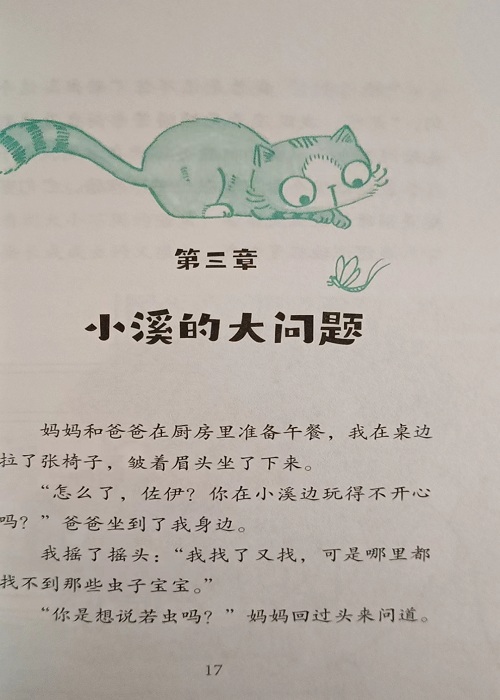 第三章
小溪的大问题
妈妈和爸爸在厨房里准备午餐，我在桌边
拉了张椅子，皱着眉头坐了下来。
“怎么了，佐伊？你在小溪边玩得不开心
吗？”爸爸坐到了我身边。
我摇了摇头：“我找了又找，可是哪里都
找不到那些虫子宝宝。”
“你是想说若虫吗？”妈妈回过头来问道。
17